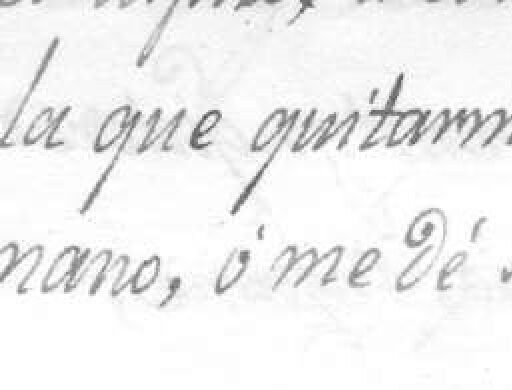 la que quitarm
mano, ó me dé